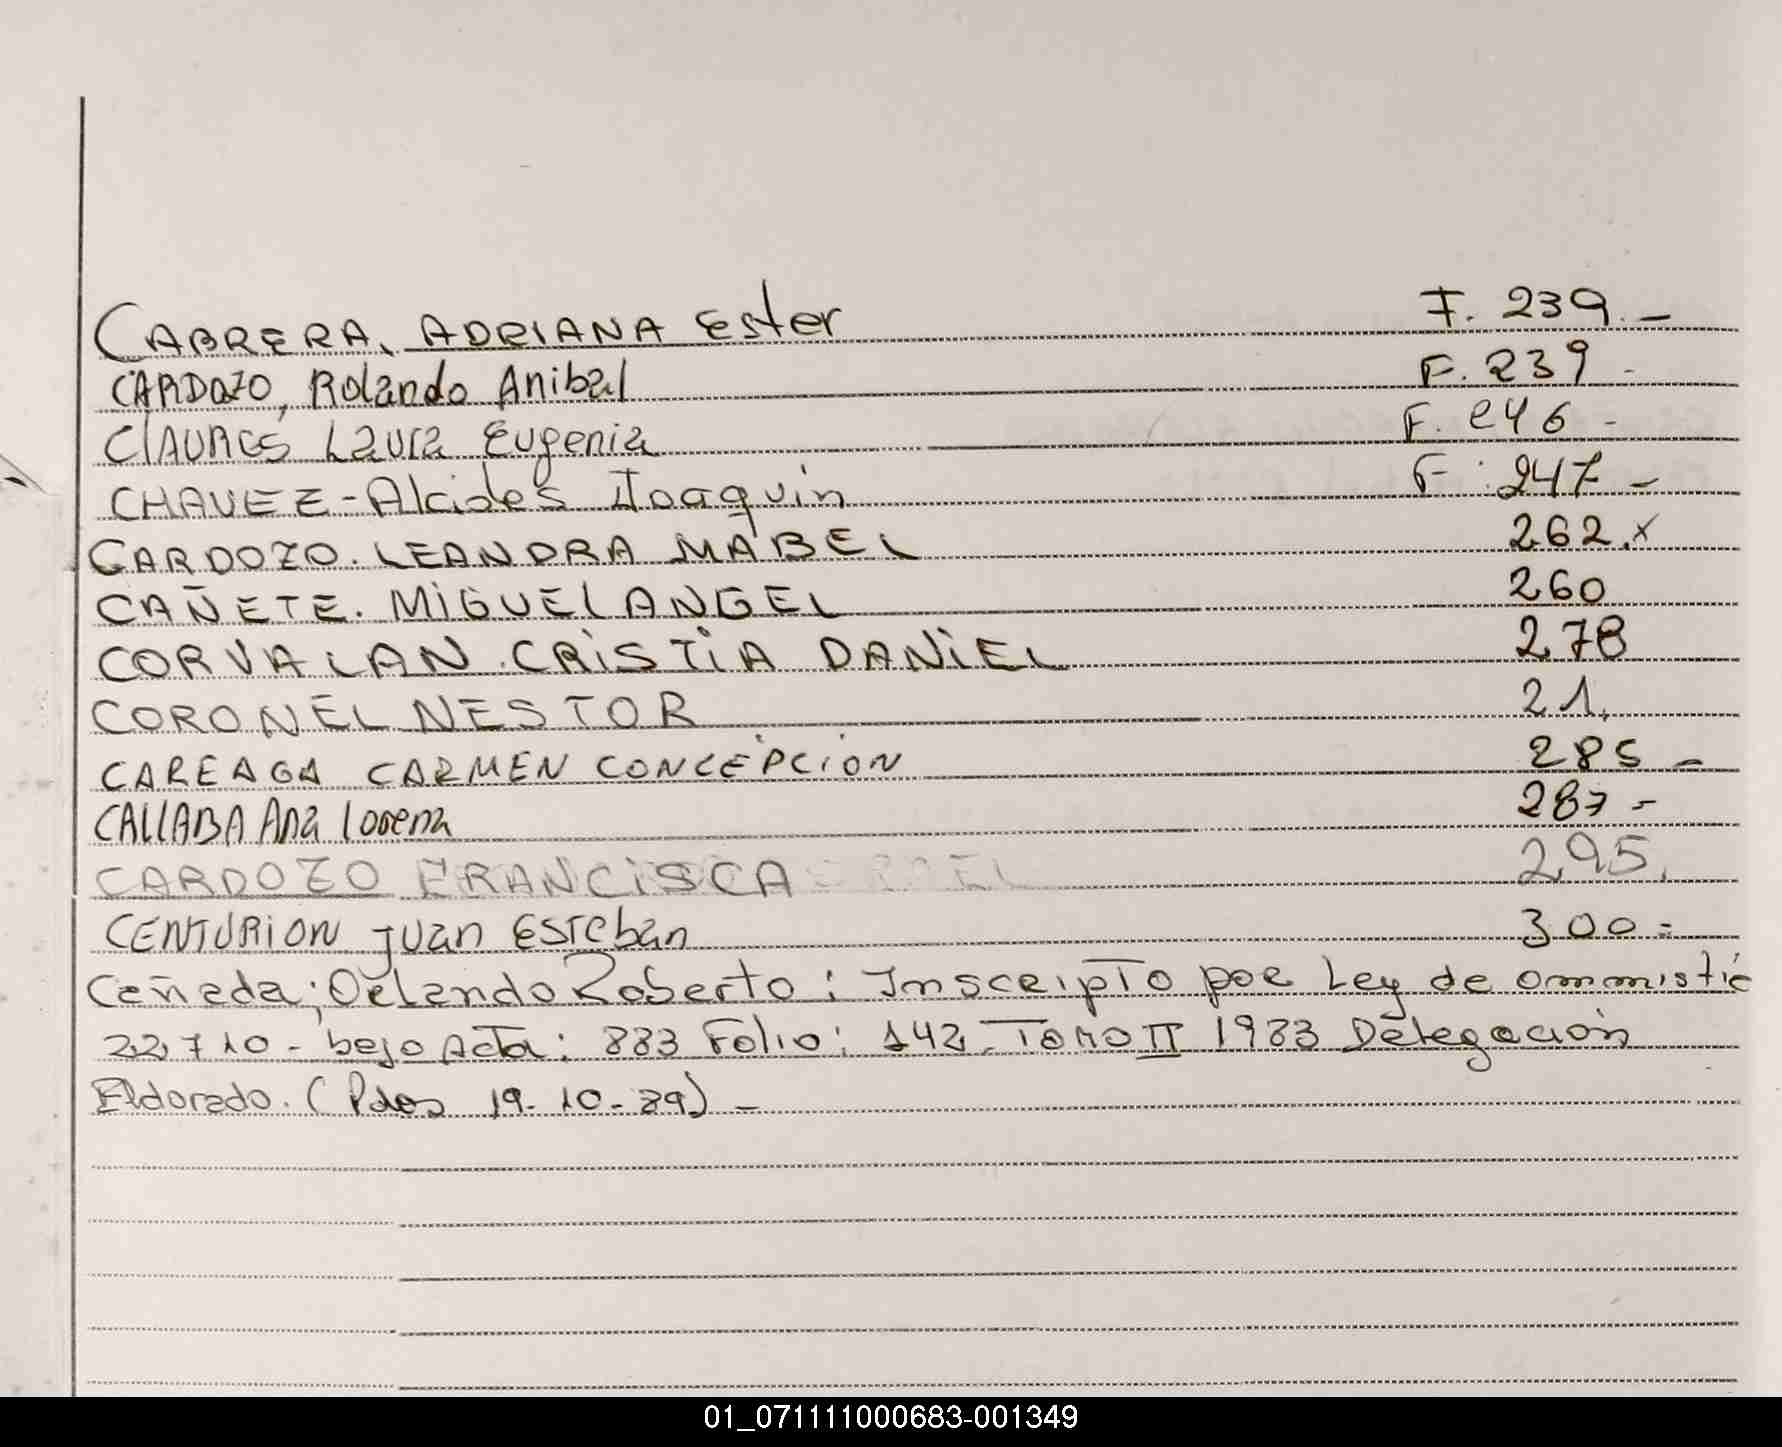 CABRERA, ADRIANA Ester F. 239.-
CARDOZO, Rolando Anibal F. 239-
Laura Eugenia F. 246-
CHAVEZ-Alcides Joaquin F. 247-
CARDOZO. LEANDRA MABEL 262.x
CAÑETE. MIGUEL ANGEL 260
CORVALAN. CRISTIA DANIEL 278
CORONEL NESTOR 21.
CAREAGA CARMEN CONCEPCION 285-
CALLABA Ana Lorena 287-
CARDOZO FRANCISCA 295.
CENTURION Juan Esteban 300-
Cañada; Orlando Roberto: Inscripto por Ley de ommistia
22710- bajo Acta: 883 Folio: 142. Tomo II 1983 Delegación
Eldorado. (Pdas 19-10-89)-
01_071111000683-001349